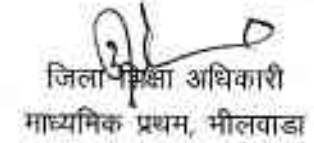 जिला शिक्षा अधिकारी
माध्यमिक प्रथम, भीलवाडा